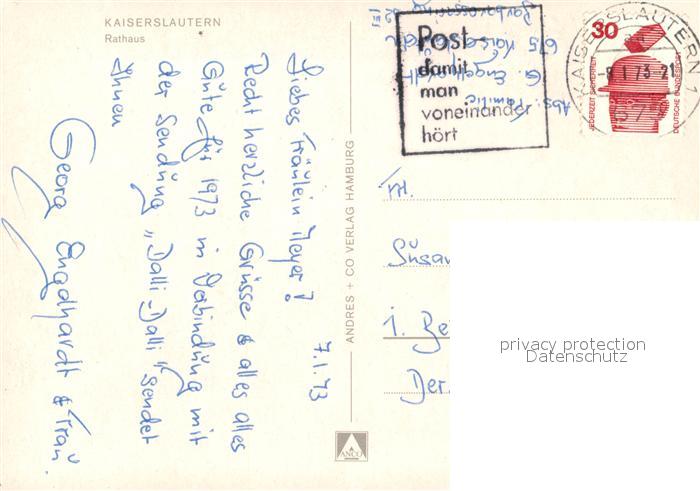 KAISERSLAUTERN
Rathaus
7.1.73
Liebes Fräulein Meyer!
Recht herzliche Grüsse & alles alles
Gute für 1973 in Verbindung mit
der Sendung „Dalli-Dalli" sendet
Ihnen
Georg Engelhardt & Frau.
ANDRES + CO VERLAG HAMBURG
ANCO
Abs: Familie
G. Engelhardt
675 Kaiserslautern
Post
damit
man
voneinander
hört
KAISERSLAUTERN 1
675
30
JEDERZEIT SICHERHEIT
DEUTSCHE BUNDESPOST
Frl.
Susan
1.
Der
privacy protection
Datenschutz